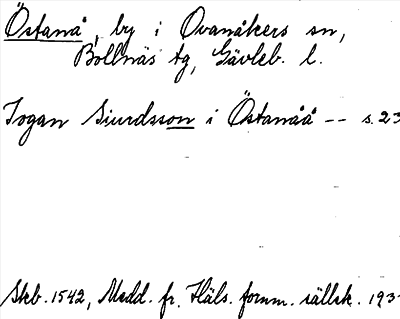 Östanå, by i Ovanåkers sn,
Bollnäs tg, Gävleb. l.
Jogan Siurdsson i Östanåå -- s. 23
Skb. 1542, Medd. fr. Häls. fornm. sällsk. 193